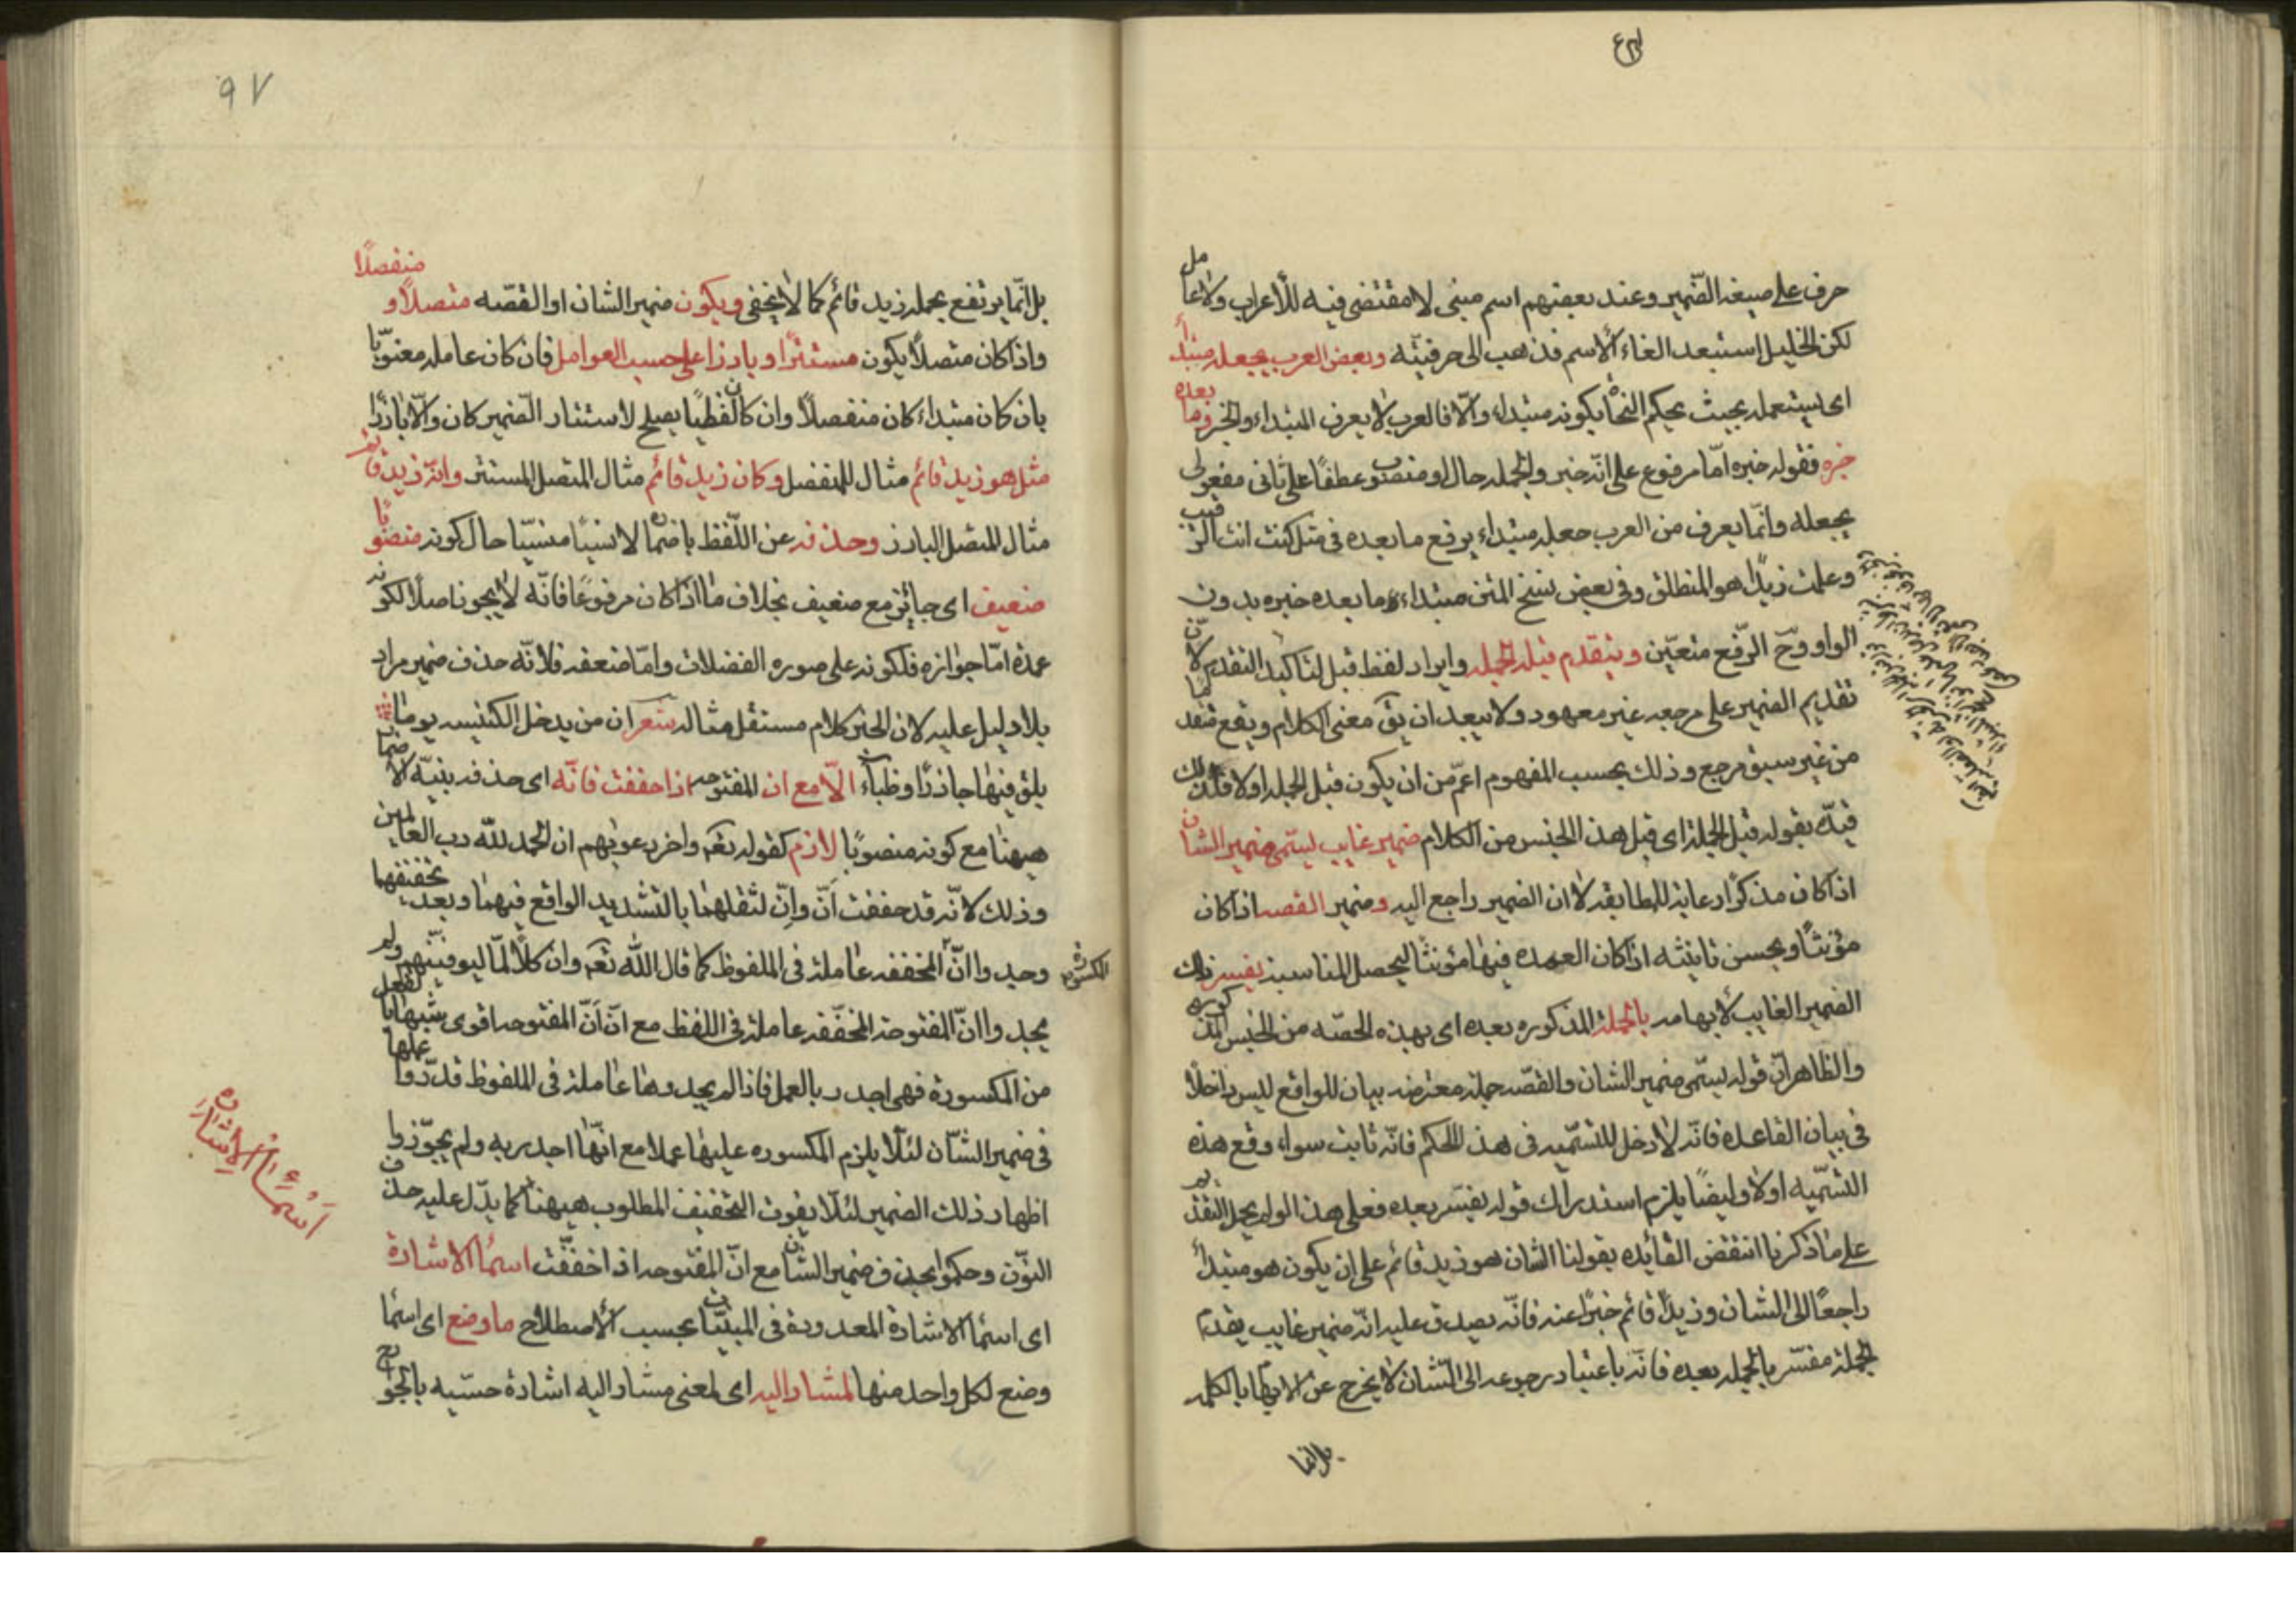 حرف على صيغة الضمير وعند بعضهم اسم مبنى لا مقتضى فيه للأعراب ولا عامل
لكن الخليل استبعد الغاء الاسم فذهب الى حرفيته وبعض العرب يجعله مبتدأ
اى يستعمله بحيث يحكم النحاة بكونه مبتداء والا فالعرب لا يعرف المبتداء والخبر وما بعده
خبره فقوله خبره امّا مرفوع على انّه خبر والجمله حال او منصوب عطفًا على ثانى مفعولى
يجعله وانّما يعرف من العرب جعله مبتداء برفع ما بعده فى مثل كنت انت الرقيب
وعلمت زيدًا هو المنطلق وفى بعض نسخ المتن مبتداء وما بعده خبره بدون
الواو وحّ الرّفع متعيّن ويتقدم قبل الجمله وايراد لفظ قبل لتاكيد التقدم لانّ
تقديم الضمير على مرجعه غير معهود ولا يبعد ان يق معنى الكلام ويقع متقدما
من غير سبق مرجع وذلك بحسب المفهوم اعمّ من ان يكون قبل الجمله اولا فلذلك
قيّده بقوله قبل الجملة اى قبل هذا الجنس من الكلام ضمير غايب ليسّمى ضمير الشان
اذا كان مذكرًا رعاية للمطابقه لان الضمير راجع اليه وضمير القصه اذا كان
مؤنثًا ويحسن تانيثه اذا كان العمده فيها مؤنثًا ليحصل المناسبة يفسر ذلك
الضمير الغايب لابهامه بالجملة المذكوره بعده اى بهذه الحصّه من الجنس المذكوره
والظاهر انّ قوله يسمّى ضمير الشان والقصّه جملة معترضه بيان للواقع ليس داخلاً
فى بيان القاعده فانّه لا دخل للتسّميه فى هذا الحكم فانّه ثابت سواء وقع هذه
التسّميه اولا وايضًا يلزم استدراك قوله يفسّر بعده فعلى هذا لو لم يحمل التقديم
على ما ذكرنا انتقض القائده بقولنا الشان هو زيد قائم على ان يكون هو مبتدأ
راجعًا الى الشان وزيدًا قائم خبرًا عنه فانّه يصدق عليه انّه ضمير غايب يقدم
الجملة مفسّر بالجمله بعده فانّه باعتبار رجوعه الى الشّان لا يخرج عن الابهام بالكليه
بل انّما
۹۷
بل انّما يرتفع بجمله زيد قائم كما لا يخفى ويكون ضمير الشان او القصّه متصلاً و منفصلًا
واذا كان متصلاً يكون مستترًا وبارزا على حسب العوامل فان كان عامله معنويًّا
بان كان مبتداء كان منفصلاً وان كان لفظيًا يصلح لاستتار الضمير كان والّا بارزًا
مثل هو زيد قائم مثال للمنفصل وكان زيد قائم مثال المتصل المستتر وانّه زيد قائم
مثال المتصل البارز وحذفه عن اللّفظ باضماره لا نسيًا منسيّا حال كونه منصوبًا
ضعيف اى جائز مع ضعيف بخلاف ما اذا كان مرفوعًا فانّه لا يجوز اصلًا لكونه
عمدة امّا جوازه فلكونه على صوره الفضلات وامّا ضعفه فلانّه حذف ضمير مراد
بلا دليل عليه لان الخبر كلام مستقل مثاله شعر ان من يدخل الكنيسه يومًا
يلق فيها جاذرًا وظباءً الّا مع ان المفتوحه اذا خففت فانّه اى حذفه بنيّة الاضمار
هيهنا مع كونه منصوبًا لازم كقوله تعم واخر دعويهم ان الحمد لله رب العالمين
وذلك لانّه قد خففت انّ وانّ لثقلهما بالتشديد الواقع فيهما وبعد تخفيفهما
وجدوا انّ المخففه عاملة فى الملفوظ كما قال اللّه تعم وان كلًا لمّا ليوفينّهم ولم
المكسورة
يجدوا انّ المفتوحة المخفّفه عاملة فى اللفظ مع انّ انّ المفتوحه اقوى شبها بالفعل
من المكسورة فهى اجدر بالعمل فاذا لم يجدوها عاملة فى الملفوظ قدّروا عملها
فى ضمير الشّان لئلّا يلزم المكسوره عليها عملا مع انّها اجدر به ولم يجوّزوا
اظهار ذلك الضمير لئلّا يفوت التخفيف المطلوب هيهنا كما يدّل عليه حذف
النوّن وحكموا بحذف ضمير الشان مع انّ المفتوحه اذا خففّت اسماء الاشارة
اى اسماء الاشارة المعدودة فى المبنيّات بحسب الاصطلاح ما وضع اى اسماء
وضع لكل واحد منها لمشار اليه اى لمعنى مشار اليه اشارة حسّيه بالجوارح
اَسْمَاءُ الاِشَارَه